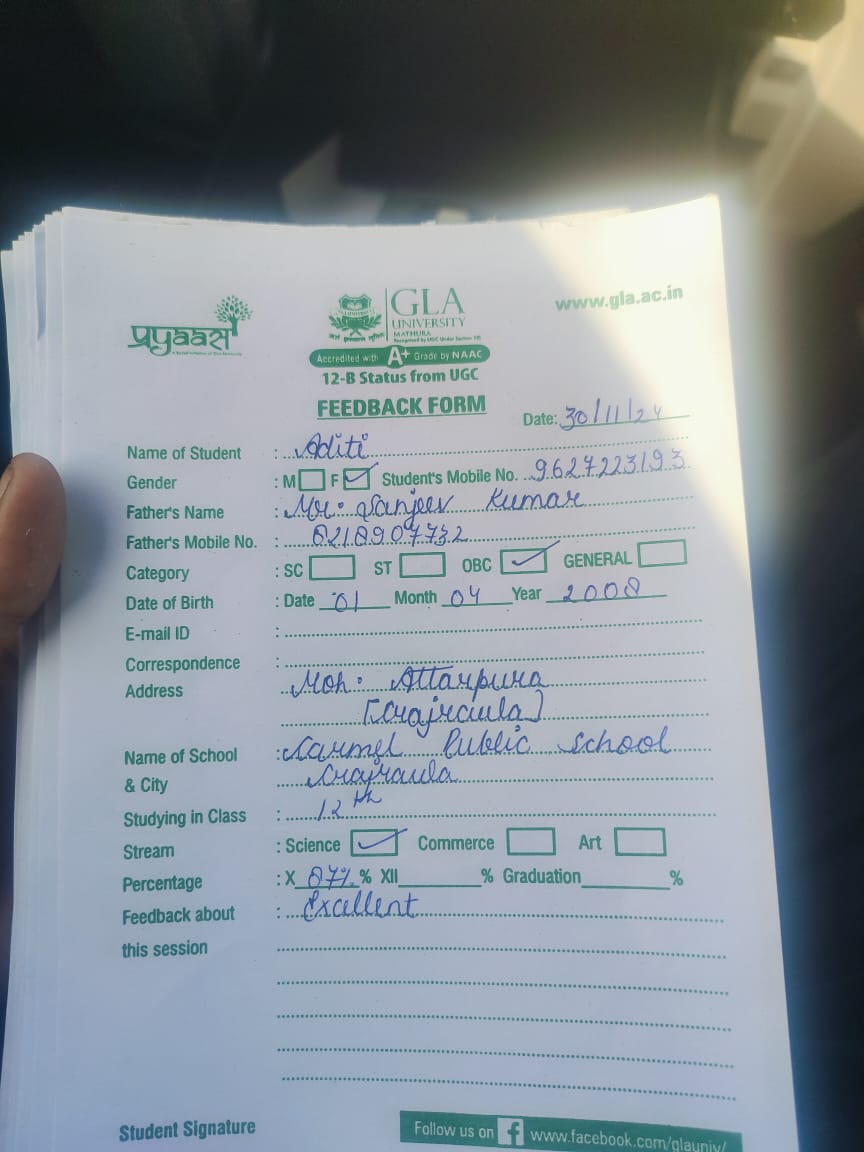 प्रyaas
GLA
UNIVERSITY
MATHURA
Recognised by UGC Under Section 2(f)
www.gla.ac.in
Accredited with A+ Grade by NAAC
12-B Status from UGC
FEEDBACK FORM
Date: 30/11/24
Name of Student : Aditi
Gender : M F ✓ Student's Mobile No. 9627223193
Father's Name : Mr. Sanjeev Kumar
Father's Mobile No. : 8218907732
Category : SC ST OBC ✓ GENERAL
Date of Birth : Date 01 Month 04 Year 2008
E-mail ID :
Correspondence :
Address Moh. Attarpura
[Gajraula]
Name of School : Karmel Public School
& City Gajraula
Studying in Class : 12th
Stream : Science ✓ Commerce Art
Percentage : X 87% % XII % Graduation %
Feedback about : Excellent
this session
Student Signature
Follow us on f www.facebook.com/glauniv/